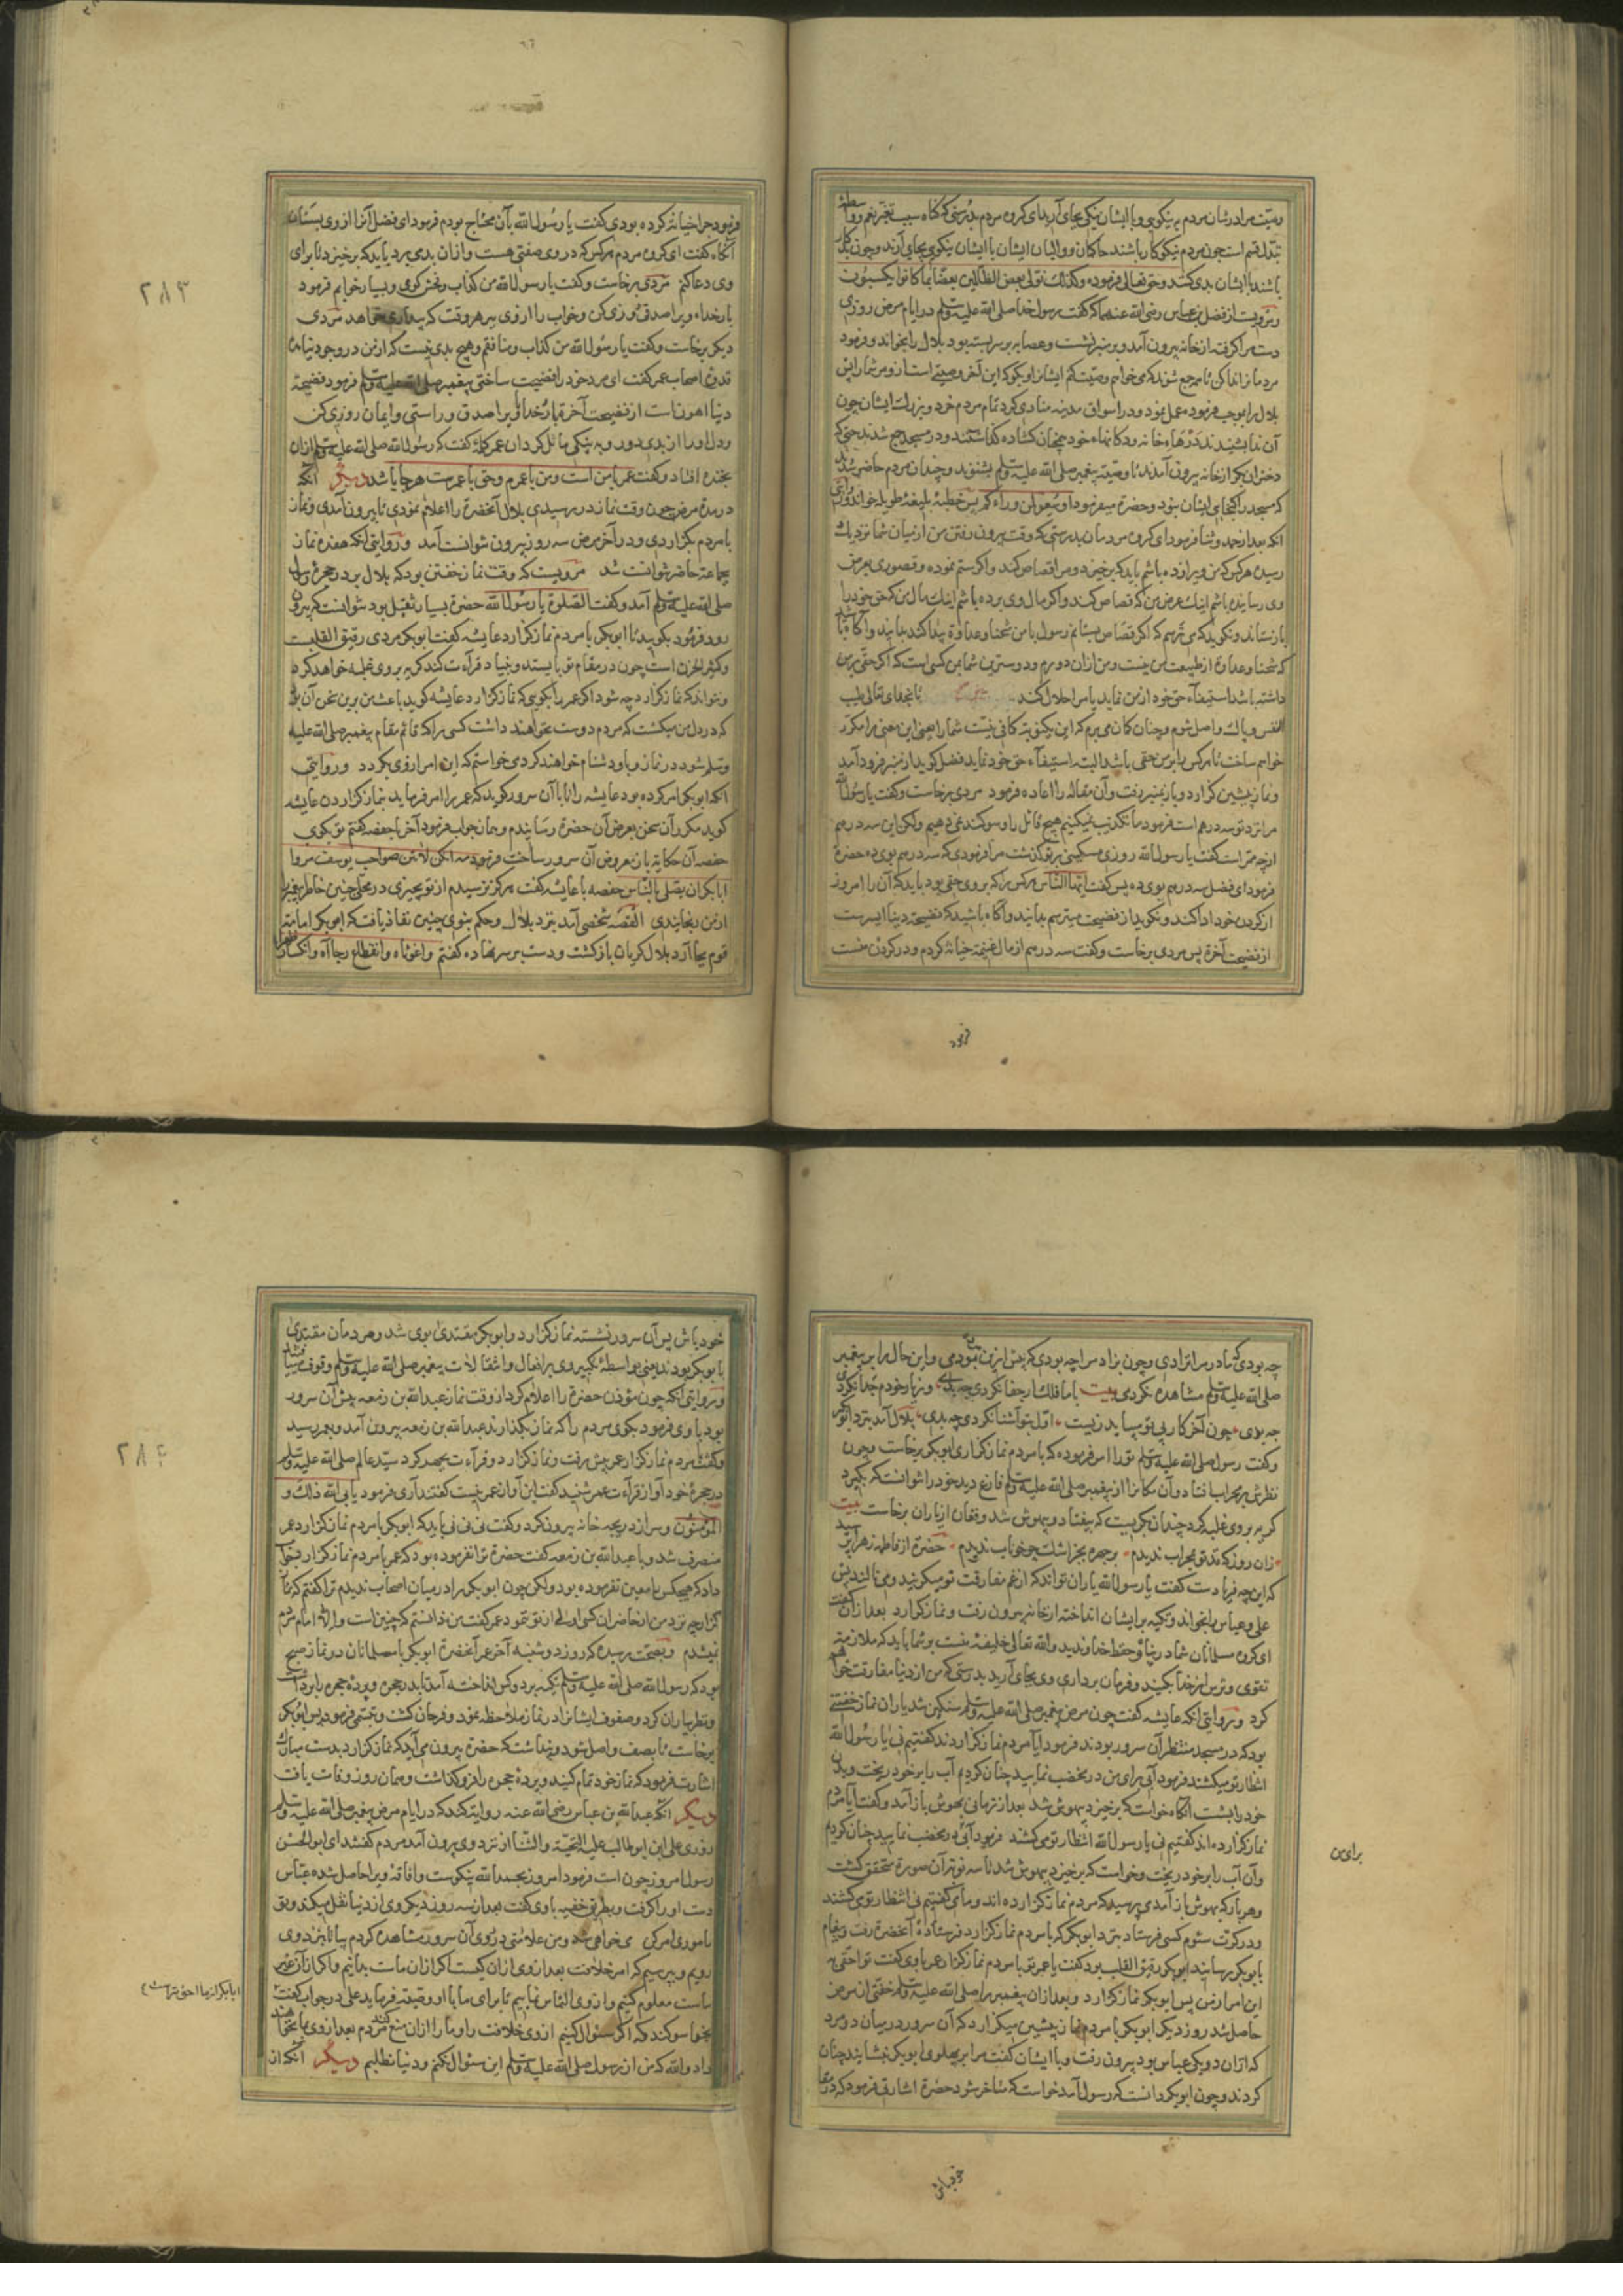 وصیت مر ادرشان مردم به نیکویی و با ایشان نیکی بجای آرید ای گروه مردم بدرستی که گناه سبب تغیر نعم و واسطهٔ
تبدل قسم است چون مردم نیکوکار باشند حاکمان و والیان ایشان با ایشان نیکویی بجای آرند و چون بدکار
باشند با ایشان بدی کنند و حق تعالی فرموده وکذلک نولی بعض الظالمین بعضا بما کانوا یکسبون
و مرویست از فضل بن عباس رضی الله عنهما که گفت رسول خدا صلی الله علیه وسلم در ایام مرض روزی
دست مرا گرفته از خانه بیرون آمد و بر منبر نشست و عصابه بر سر بسته بود بلال را بخواند و فرمود
مردمانرا ندا کن تا مرجع شوند که می خواهم وصیت کنم ایشانرا و بگو که این آخر وصیتی است از من مر شما را پس
بلال بر ابموجب فرموده عمل نمود و در اسواق مدینه منادی کرد تمام مردم خرد و بزرگ ایشان چون
آن ندا بشنیدند درهاء خانه و دکانهاء خود همچنان گشاده گذاشتند و در مسجد جمع شدند حتی که
دختران بکر از خانه بیرون آمدند تا وصیة پیغمبر صلی الله علیه وسلم بشنوند و چندان مردم حاضر شدند
که مسجد را گنجای ایشان نبود و حضرة میفرمود اوسعوا لمن وراءکم پس خطبهٔ بلیغهٔ طویله خواند و
آنکه بعد از حمد و ثنا فرمود ای گروه مردمان بدرستی که وقت بیرون رفتن من از میان شما نزدیک
رسیده هرکس که من ویرا زده باشم باید که برخیزد و مرا قصاص کند و اگر ستم نموده و قصوری بعرض
وی رسانیده باشم اینک عرض من که قصاص کند و اگر مال وی برده باشم اینک مال من که حق خود را
باز ستاند و نگوید که می ترسم که اگر قصاص بستانم رسول با من شحنا و عداوة پیدا کند بدانید و آگاه باشید
که شحنا و عداوة از طبیعت من نیست و من از آن دورم و دوسترین شما بمن کسی است که اگر حقی بر من
داشته باشد استیفاء حق خود از من نماید یا مرا حلال کند تا بخدای تعالی طیب
النفس و پاک واصل شوم و چنان گمان می برم که این یکنوبة کافی نیست شما را یعنی این معنی را مکرر
خواهم ساخت تا هرکس را بر من حقی باشد البته استیفاء حق خود نماید فضل گوید از منبر فرود آمد
و نماز پیشین گزارد و باز بمنبر رفت و آن مقاله را اعاده فرمود مردی برخاست و گفت یا رسول الله
مرا نزد تو سه درهم است فرمود ما تکذیب نمیکنیم هیچ قائل را و سوگند نمی دهیم ولکن این سه درهم
از چه ممر است گفت یا رسول الله روزی مسکینی بر تو گذشت مرا فرمودی که سه درهم بوی ده حضرة
فرمود ای فضل سه درهم بوی ده پس گفت ایها الناس هرکس را که بروی حقی بود باید که آن را امروز
از گردن خود ادا کند و نگوید از فضیحت میترسم بدانید و آگاه باشید که فضیحت دنیا ایسرست
از فضیحت آخرة پس مردی برخاست و گفت سه درهم از مال غنیمة خیانة کردم و در گردن منست
فرمود
فرمود چرا خیانة کرده بودی گفت یا رسول الله بآن محتاج بودم فرمود ای فضل آنرا از وی بستان
آنگاه گفت ای گروه مردم هرکس که در وی صفتی هست و از آن بدی برد باید که برخیزد تا برای
وی دعا کنم مردی برخاست و گفت یا رسول الله من کذاب و فحش گوی و بسیار خوابم فرمود
بار خدایا ویرا صدق روزی کن و خواب را از وی ببر هر وقت که بیداری خواهد مردی
دیگر برخاست و گفت یا رسول الله من کذاب و منافقم و هیچ بدی نیست که از من در وجود نیامده
اصحاب عمر گفت ای مرد خود را فضیحت ساختی پیغمبر صلی الله علیه وسلم فرمود فضیحة
دنیا اهون است از فضیحت آخرة بار خدایا ویرا صدق و راستی و ایمان روزی کن
و دل او را از بدی دور و به نیکی مائل گردان عمر کلمهٔ گفت که رسول الله صلی الله علیه وسلم از آن
بخنده افتاد و گفت عمر با من است و من با عمرم و حق با عمرست هرجا باشد دیگر آنکه
در مدة مرض چون وقت نماز در رسیدی بلال آنحضرة را اعلام نمودی تا بیرون آمدی و نماز
با مردم بگزاردی و در آخر مرض سه روز بیرون نتوانست آمد و روایتی آنکه هفده نماز
بجماعة حاضر نتوانست شد مرویست که وقت نماز خفتن بود که بلال بر در حجرهٔ رسول
صلی الله علیه وسلم آمد و گفت الصلوة یا رسول الله حضرة بسیار ثقیل بود نتوانست که بیرون
رود فرمود بگویید تا ابوبکر با مردم نماز گزارد عایشه گفت ابوبکر مردی رقیق القلب
و کثیر الحزن است چون در مقام تو بایستد و بنیاد قرآءت کند گریه بروی غلبه خواهد کرد
و نتواند که نماز گزارد چه شود اگر عمر را بگویی که نماز گزارد عایشه گوید باعث من برین سخن آن بود
که در دل من میگشت که مردم دوست نخواهند داشت کسی را که قائم مقام پیغمبر صلی الله علیه
وسلم شود در نماز و باو دشنام خواهند کرد می خواستم که این امر از وی بگردد و روایتی
آنکه ابوبکر امر کرده بود عایشه را تا با آن سرور گوید که عمر را امر فرماید بنماز گزاردن عایشه
گوید مکرر آن سخن بعرض آن حضرة رسانیدم و همان جواب فرمود آخر با حفصه گفتم تو بگوی
حفصه آن حکایة بازمعروض آن سرور ساخت فرمود مه انکن لانتن صواحب یوسف مروا
ابابکر ان یصلی بالناس حفصه با عایشه گفت هرگز نرسیدم از تو بچیزی در محلی چنین خاطر پیغمبر
از من رنجانیدی القصه شخصی آمد نزد بلال و حکم نبوی چنین نفاذ یافت که ابوبکر امامة
قوم بجا آرد بلال گریان باز گشت و دست بر سر نهاده گفتم واغوثاه وانقطاع رجاآه وانکسار
چه بودی که مادر مرا نزادی و چون بزاد مرا چه بودی که پیش ازین بمردمی و این حال را بر پیغمبر
صلی الله علیه وسلم مشاهده نکردمی بیت با ما فلک ار جفا نکردی چه بدی وز یار خودم جدا نکردی
چه بدی چون آخر کار بی تو میباید زیست اول بتو آشنا نکردی چه بدی بلال آمد نزد ابوبکر
و گفت رسول صلی الله علیه وسلم تو را امر فرموده که با مردم نماز گزاری ابوبکر برخاست و چون
نظرش بر محراب افتاد و آن مکانرا از پیغمبر صلی الله علیه وسلم فارغ دید خود را نتوانست که بگیرد
گریه بروی غلبه کرد چندان بگریست که بیفتاد و بیهوش شد و فغان از یاران برخاست بیت
زان روز که قد تو بمحراب ندیدم بر چهره بجز اشک چو خوناب ندیدم حضرة از فاطمه زهرا پرسید
که این چه فریادست گفت یا رسول الله یاران تو اند که از غم مفارقت تو میگریند و می نالند پس
علی و عباس را بخواند و تکیه بر ایشان انداخته از خانه بیرون رفت و نماز گزارد بعد از آن گفت
ای گروه مسلمانان شما در پناه و حفظ خداوندید و الله تعالی خلیفهٔ منست بر شما باید که ملازمة
تقوی و ترس از خدا بکنید و فرمان برداری وی بجای آرید بدرستی که من از دنیا مفارقت خواهم
کرد و روایتی آنکه عایشه گفت چون مرض پیغمبر صلی الله علیه وسلم سنگین شد یاران نماز خفتنی
بود که در مسجد منتظر آن سرور بودند فرمود آیا مردم نماز گزاردند گفتیم نی یا رسول الله
انتظار تو میکشند فرمود آبی برای من در مخضب نمایید چنان کردیم آب را بر خود ریخت و بدن
خود را بشست آنگاه خواست که برخیزد بیهوش شد بعد از زمانی بهوش باز آمد و گفت آیا مردم
نماز گزارده اند گفتیم نی یا رسول الله انتظار تو می کشند فرمود آبی در مخضب نمایید چنان کردیم
و آن آب را بر خود ریخت و خواست که برخیزد بیهوش شد تا سه نوبة آن صورة متحقق گشت
و هر بار که بهوش باز آمدی پرسید که مردم نماز گزارده اند و ما می گفتیم نی انتظار تو می کشند
و در کرت سئوم کسی فرستاد نزد ابوبکر که با مردم نماز گزارد فرستادهٔ آنحضرة رفت و پیغام
بابوبکر رسانید ابوبکر رقیق القلب بود گفت یا عمر تو با مردم نماز گزار عمر باوی گفت تو احقی به
این امر از من پس ابوبکر نماز گزارد و بعد از آن پیغمبر را صلی الله علیه وسلم خفتی از مرض
حاصل شد روز دیگر ابوبکر با مردم نماز پیشین میگزارد که آن سرور در میان دو مرد
که از آن دو یکی عباس بود بیرون رفت و با ایشان گفت مرا بر پهلوی ابوبکر بنشانید چنان
کردند و چون ابوبکر دانست که رسول آمد خواست که متاخر شود حضرة اشارة فرمود که در مقام
برای من
خود باش
خود باش پس آن سرور نشسته نماز گزارد و ابوبکر مقتدی بوی شد و مردمان مقتدی
بابوبکر بودند یعنی بواسطهٔ تکبیر وی بر افعال و انتقالات پیغمبر صلی الله علیه وسلم وقوف
و روایتی آنکه چون مؤذن حضرة را اعلام کرد از وقت نماز عبدالله بن زمعه پیش آن سرور
بود باوی فرمود بگوی مردم را که نماز بگذارند عبدالله بن زمعه بیرون آمد و بعمر رسید
و گفت با مردم نماز گزار عمر پیش رفت و نماز گزارد و قرآءت بجهر کرد سید عالم صلی الله علیه وسلم
در حجرهٔ خود آواز قرآءت عمر شنید گفت این آواز عمر نیست گفتند آری فرمود یابی الله ذلک و
المؤمنون و سر از دریچه خانه بیرون کرد و گفت نی نی نی باید که ابوبکر با مردم نماز گزارد عمر
منصرف شد و با عبدالله بن زمعه گفت حضرة ترا نفرموده بود که عمر با مردم نماز گزارد جواب
داد که هیچکس را معین نفرموده بود ولکن چون ابوبکر را در میان اصحاب ندیدم ترا گفتم که نماز
گزار چه نزد من از حاضران کسی اولی از تو نمود عمر گفت من ندانستم که چنین است و الا امام مردم
نمیشدم و بصحت رسیده که روز دوشنبه آخر عمر آنحضرة ابوبکر با مسلمانان در نماز صبح
بود که رسول الله صلی الله علیه وسلم تکیه بر دو کس انداخته آمد تا بدر حجره و پردهٔ حجره را برداشت
و نظر بیاران کرد و صفوف ایشانرا در نماز ملاحظه نمود و فرحان گشت و تبسمی فرمود پس ابوبکر
برخاست تا بصف واصل شود و پنداشت که حضرة بیرون می آید که نماز گزارد بدست مبارک
اشارت فرمود که نماز خود تمام کنید و پردهٔ حجره را فرو گذاشت و همان روز وفات یافت
دیگر آنکه عبدالله بن عباس رضی الله عنه روایة کند که در ایام مرض پیغمبر صلی الله علیه وسلم
روزی علی ابن ابوطالب علیه التحیة والثنا از نزد وی بیرون آمد مردم گفتند ای ابو الحسن
رسول امروز چون است فرمود امروز بحمد الله نیکوست و افاقة ویرا حاصل شده عباس
دست او را گرفت و بطریق خفیه باوی گفت بعد از سه روز دیگر وی از دنیا نقل میکند و تو
مامور امر کسی خواهی شد و من علامتی در روی آن سرور مشاهده کردم بیا تا نزد وی
رویم و بپرسیم که امر خلافت بعد از وی از آن کیست اگر از آن ماست بدانیم و اگر از آن غیر
ماست معلوم کنیم و از وی التماس نماییم تا برای ما با او وصیة فرماید علی در جواب گفت
بخدا سوگند که اگر سئوال کنیم از وی خلافت را و ما را از آن منع کند مردم بعد از وی بما نخواهند
داد والله که من از رسول صلی الله علیه وسلم این سئوال نکنم و دنیا نطلبم دیگر آنکه از
۲۸۳
۲۸۴